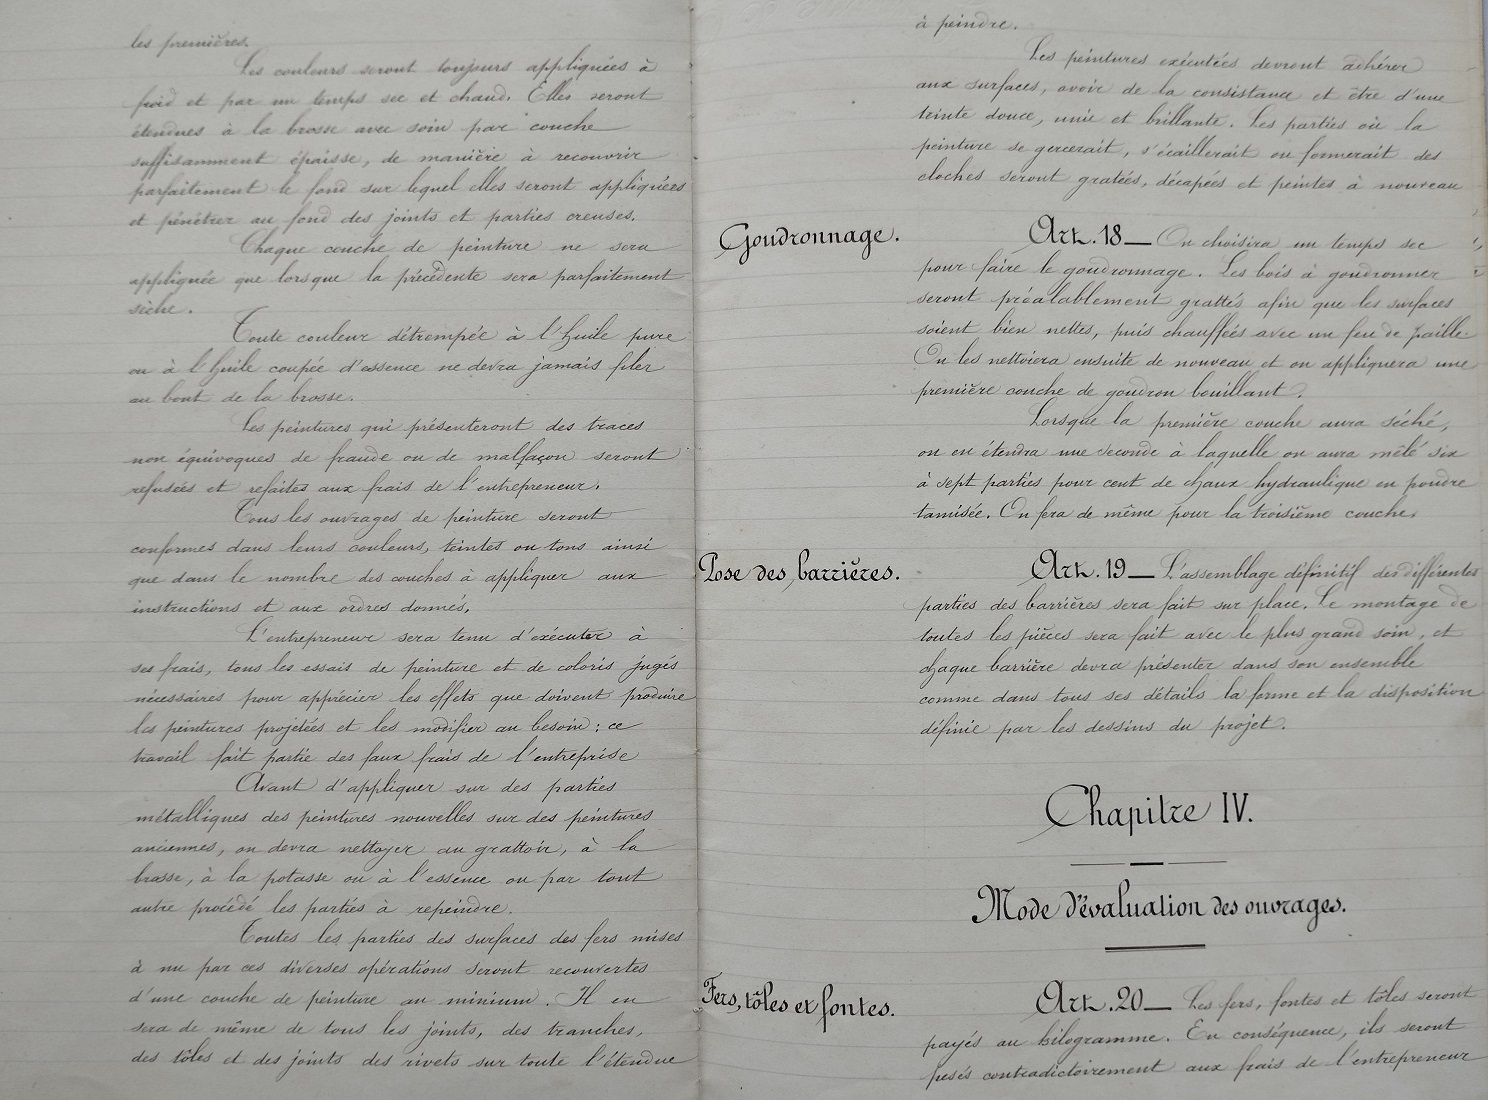 les premières.
Les couleurs seront toujours appliquées à
froid et par un temps sec et chaud. Elles seront
étendues à la brosse avec soin par couche
suffisamment épaisse, de manière à recouvrir
parfaitement le fond sur lequel elles seront appliquées
et pénétrer au fond des joints et parties creuses.
Chaque couche de peinture ne sera
appliquée que lorsque la précédente sera parfaitement
sèche.
Toute couleur détrempée à l'huile pure
ou à l'huile coupée d'essence ne devra jamais filer
au bout de la brosse.
Les peintures qui présenteront des traces
non équivoques de fraude ou de malfaçon seront
refusées et refaites aux frais de l'entrepreneur.
Tous les ouvrages de peinture seront
conformes dans leurs couleurs, teintes ou tons ainsi
que dans le nombre des couches à appliquer aux
instructions et aux ordres donnés.
L'entrepreneur sera tenu d'exécuter à
ses frais, tous les essais de peinture et de coloris jugés
nécessaires pour apprécier les effets que doivent produire
les peintures projetées et les modifier au besoin : ce
travail fait partie des faux frais de l'entreprise
Avant d'appliquer sur des parties
métalliques des peintures nouvelles sur des peintures
anciennes, on devra nettoyer au grattoir, à la
brosse, à la potasse ou à l'essence ou par tout
autre procédé les parties à repeindre.
Toutes les parties des surfaces des fers mises
à nu par ces diverses opérations seront recouvertes
d'une couche de peinture au minium. Il en
sera de même de tous les joints, des tranches,
des tôles et des joints des rivets sur toute l'étendue
à peindre.
Les peintures exécutées devront adhérer
aux surfaces, avoir de la consistance et être d'une
teinte douce, unie et brillante. Les parties où la
peinture se gercerait, s'écaillerait ou formerait des
cloches seront gratées, décapées et peintes à nouveau
Goudronnage. Art. 18 — On choisira un temps sec
pour faire le goudronnage. Les bois à goudronner
seront préalablement grattés afin que les surfaces
soient bien nettes, puis chauffées avec un feu de paille.
On les nettoiera ensuite de nouveau et on appliquera une
première couche de goudron bouillant.
Lorsque la première couche aura séché,
on en étendra une seconde à laquelle on aura mêlé six
à sept parties pour cent de chaux hydraulique en poudre
tamisée. On fera de même pour la troisième couche.
Pose des barrières. Art. 19 — L'assemblage définitif des différentes
parties des barrières sera fait sur place. Le montage de
toutes les pièces sera fait avec le plus grand soin, et
chaque barrière devra présenter dans son ensemble
comme dans tous ses détails la forme et la disposition
définie par les dessins du projet.
Chapitre IV.
Mode d'évaluation des ouvrages.
Fers, tôles et fontes. Art. 20 — Les fers, fontes et tôles seront
payés au kilogramme. En conséquence, ils seront
pesés contradictoirement aux frais de l'entrepreneur